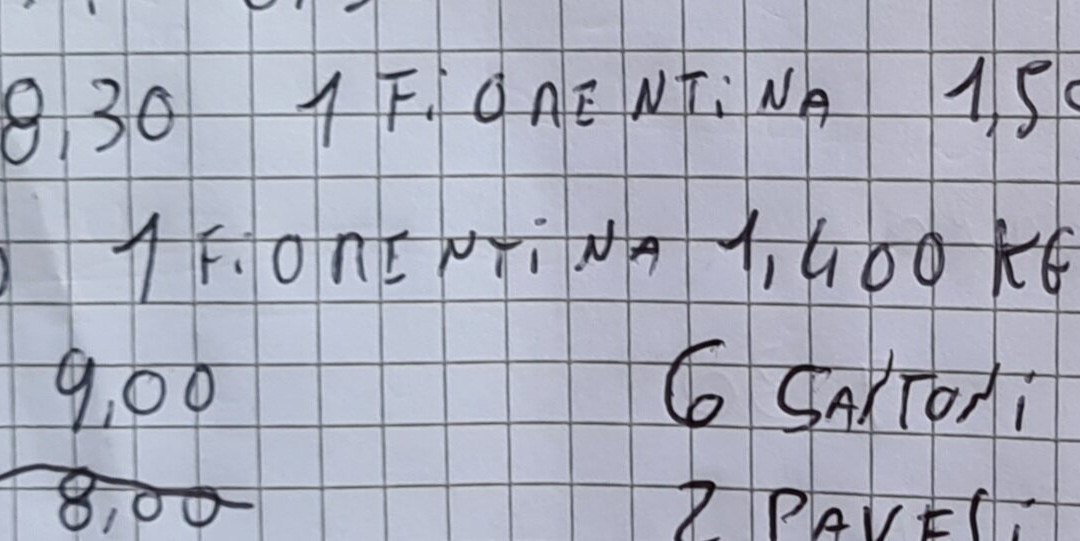 8,30 1 FiORENTiNA 1,50
1 FiORENTiNA 1,400 KG
9,00 6 SARTORi
8,00 2 PAVESi